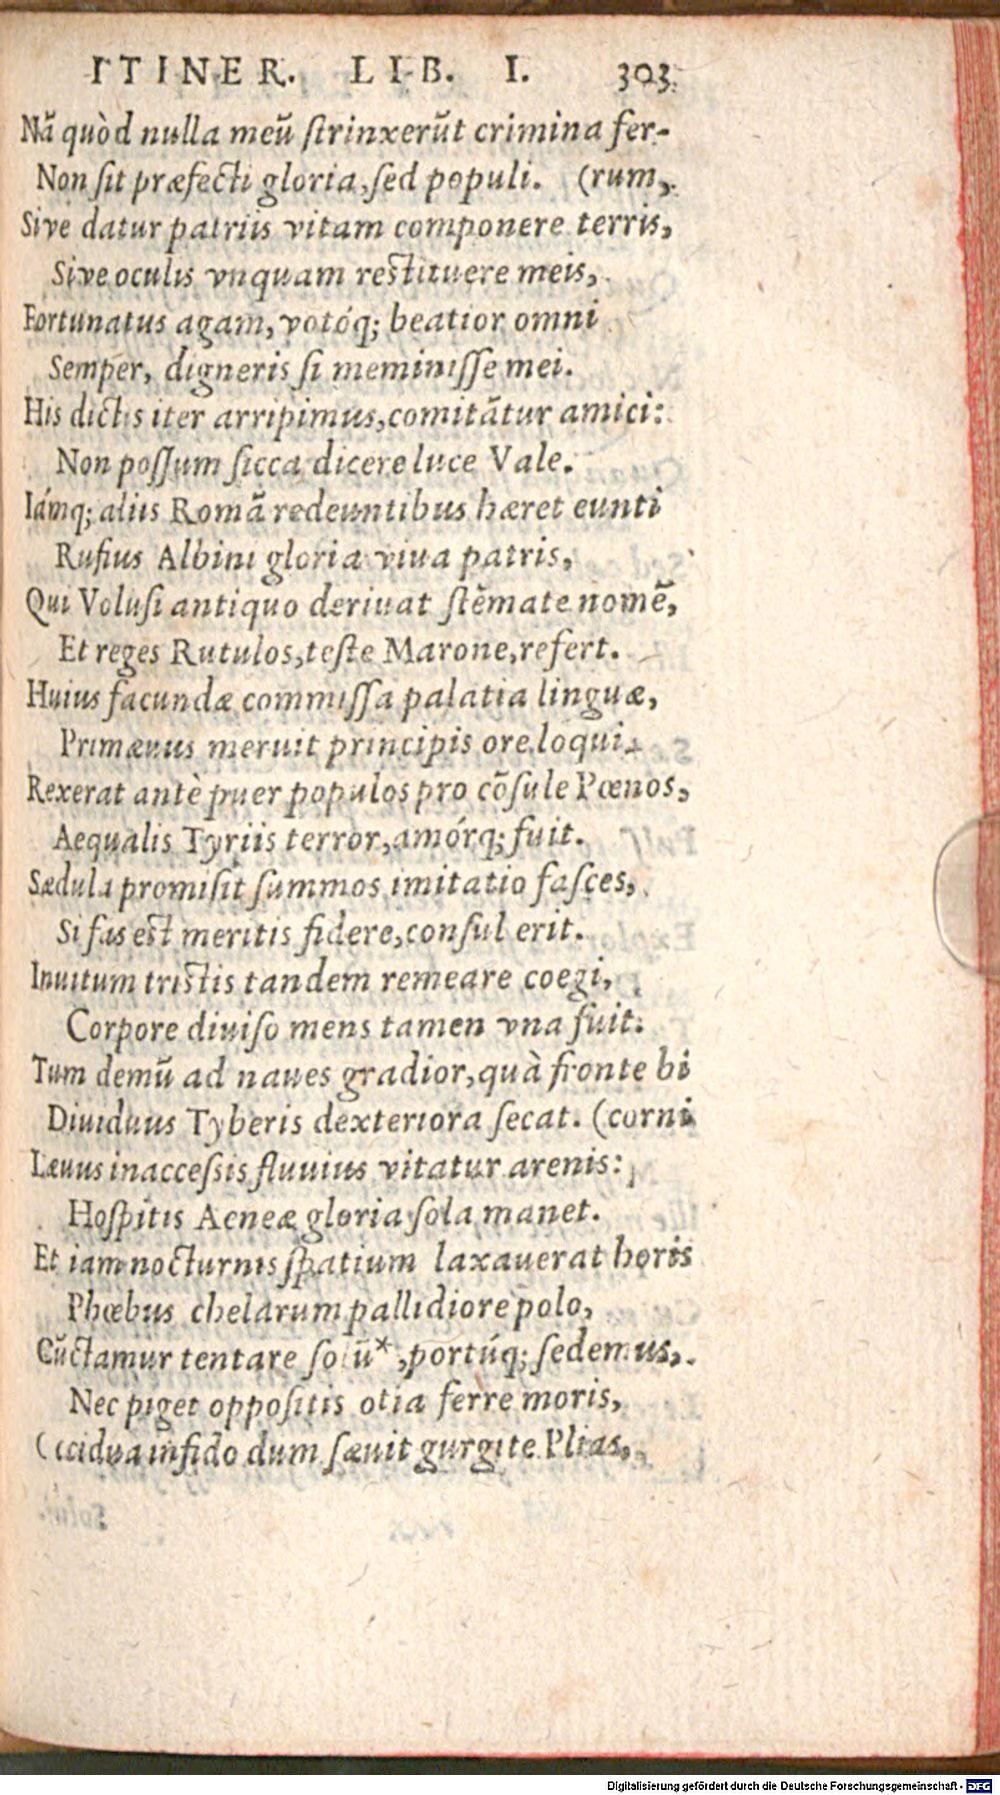 ITINER. LIB. I. 303.
Nã quòd nulla meũ strinxerũt crimina fer-
Non sit præfecti gloria, sed populi. (rum,
Sive datur patriis vitam componere terris,
Sive oculis vnquam restituere meis,
Fortunatus agam, votóq; beatior omni
Semper, digneris si meminisse mei.
His dictis iter arripimus, comitãtur amici:
Non possum sicca dicere luce Vale.
Iámq; aliis Romã redeuntibus hæret eunti
Rufius Albini gloria viua patris,
Qui Volusi antiquo deriuat stẽmate nomẽ,
Et reges Rutulos, teste Marone, refert.
Huius facundæ commissa palatia linguæ,
Primæuus meruit principis ore loqui.
Rexerat antè puer populos pro cõsule Pœnos,
Aequalis Tyriis terror, amórq; fuit.
Sædula promisit summos imitatio fasces,
Si fas est meritis fidere, consul erit.
Inuitum tristis tandem remeare coegi,
Corpore diuiso mens tamen vna fuit.
Tum demũ ad naues gradior, quà fronte bi
Diuiduus Tyberis dexteriora secat. (corni
Læuus inaccessis fluuius vitatur arenis:
Hospitis Aeneæ gloria sola manet.
Et iam nocturnis spatium laxauerat horis
Phœbus chelarum pallidiore polo,
Cũctamur tentare solũ*, portúq; sedemus,
Nec piget oppositis otia ferre moris,
Occidua infido dum sæuit gurgite Plias,
Digitalisierung gefördert durch die Deutsche Forschungsgemeinschaft - DFG